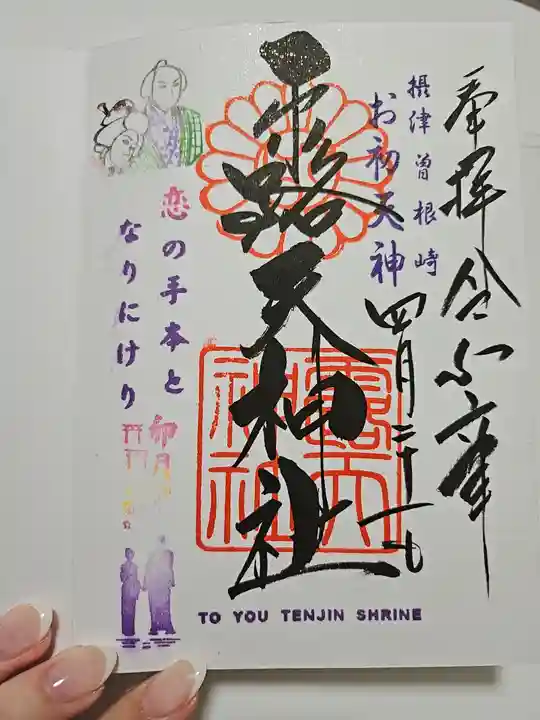 奉拝 令和六年
摂津曽根崎
お初天神
四月二十一日
露天神社
露天
神社
恋の手本と
なりにけり
卯月
TO YOU TENJIN SHRINE